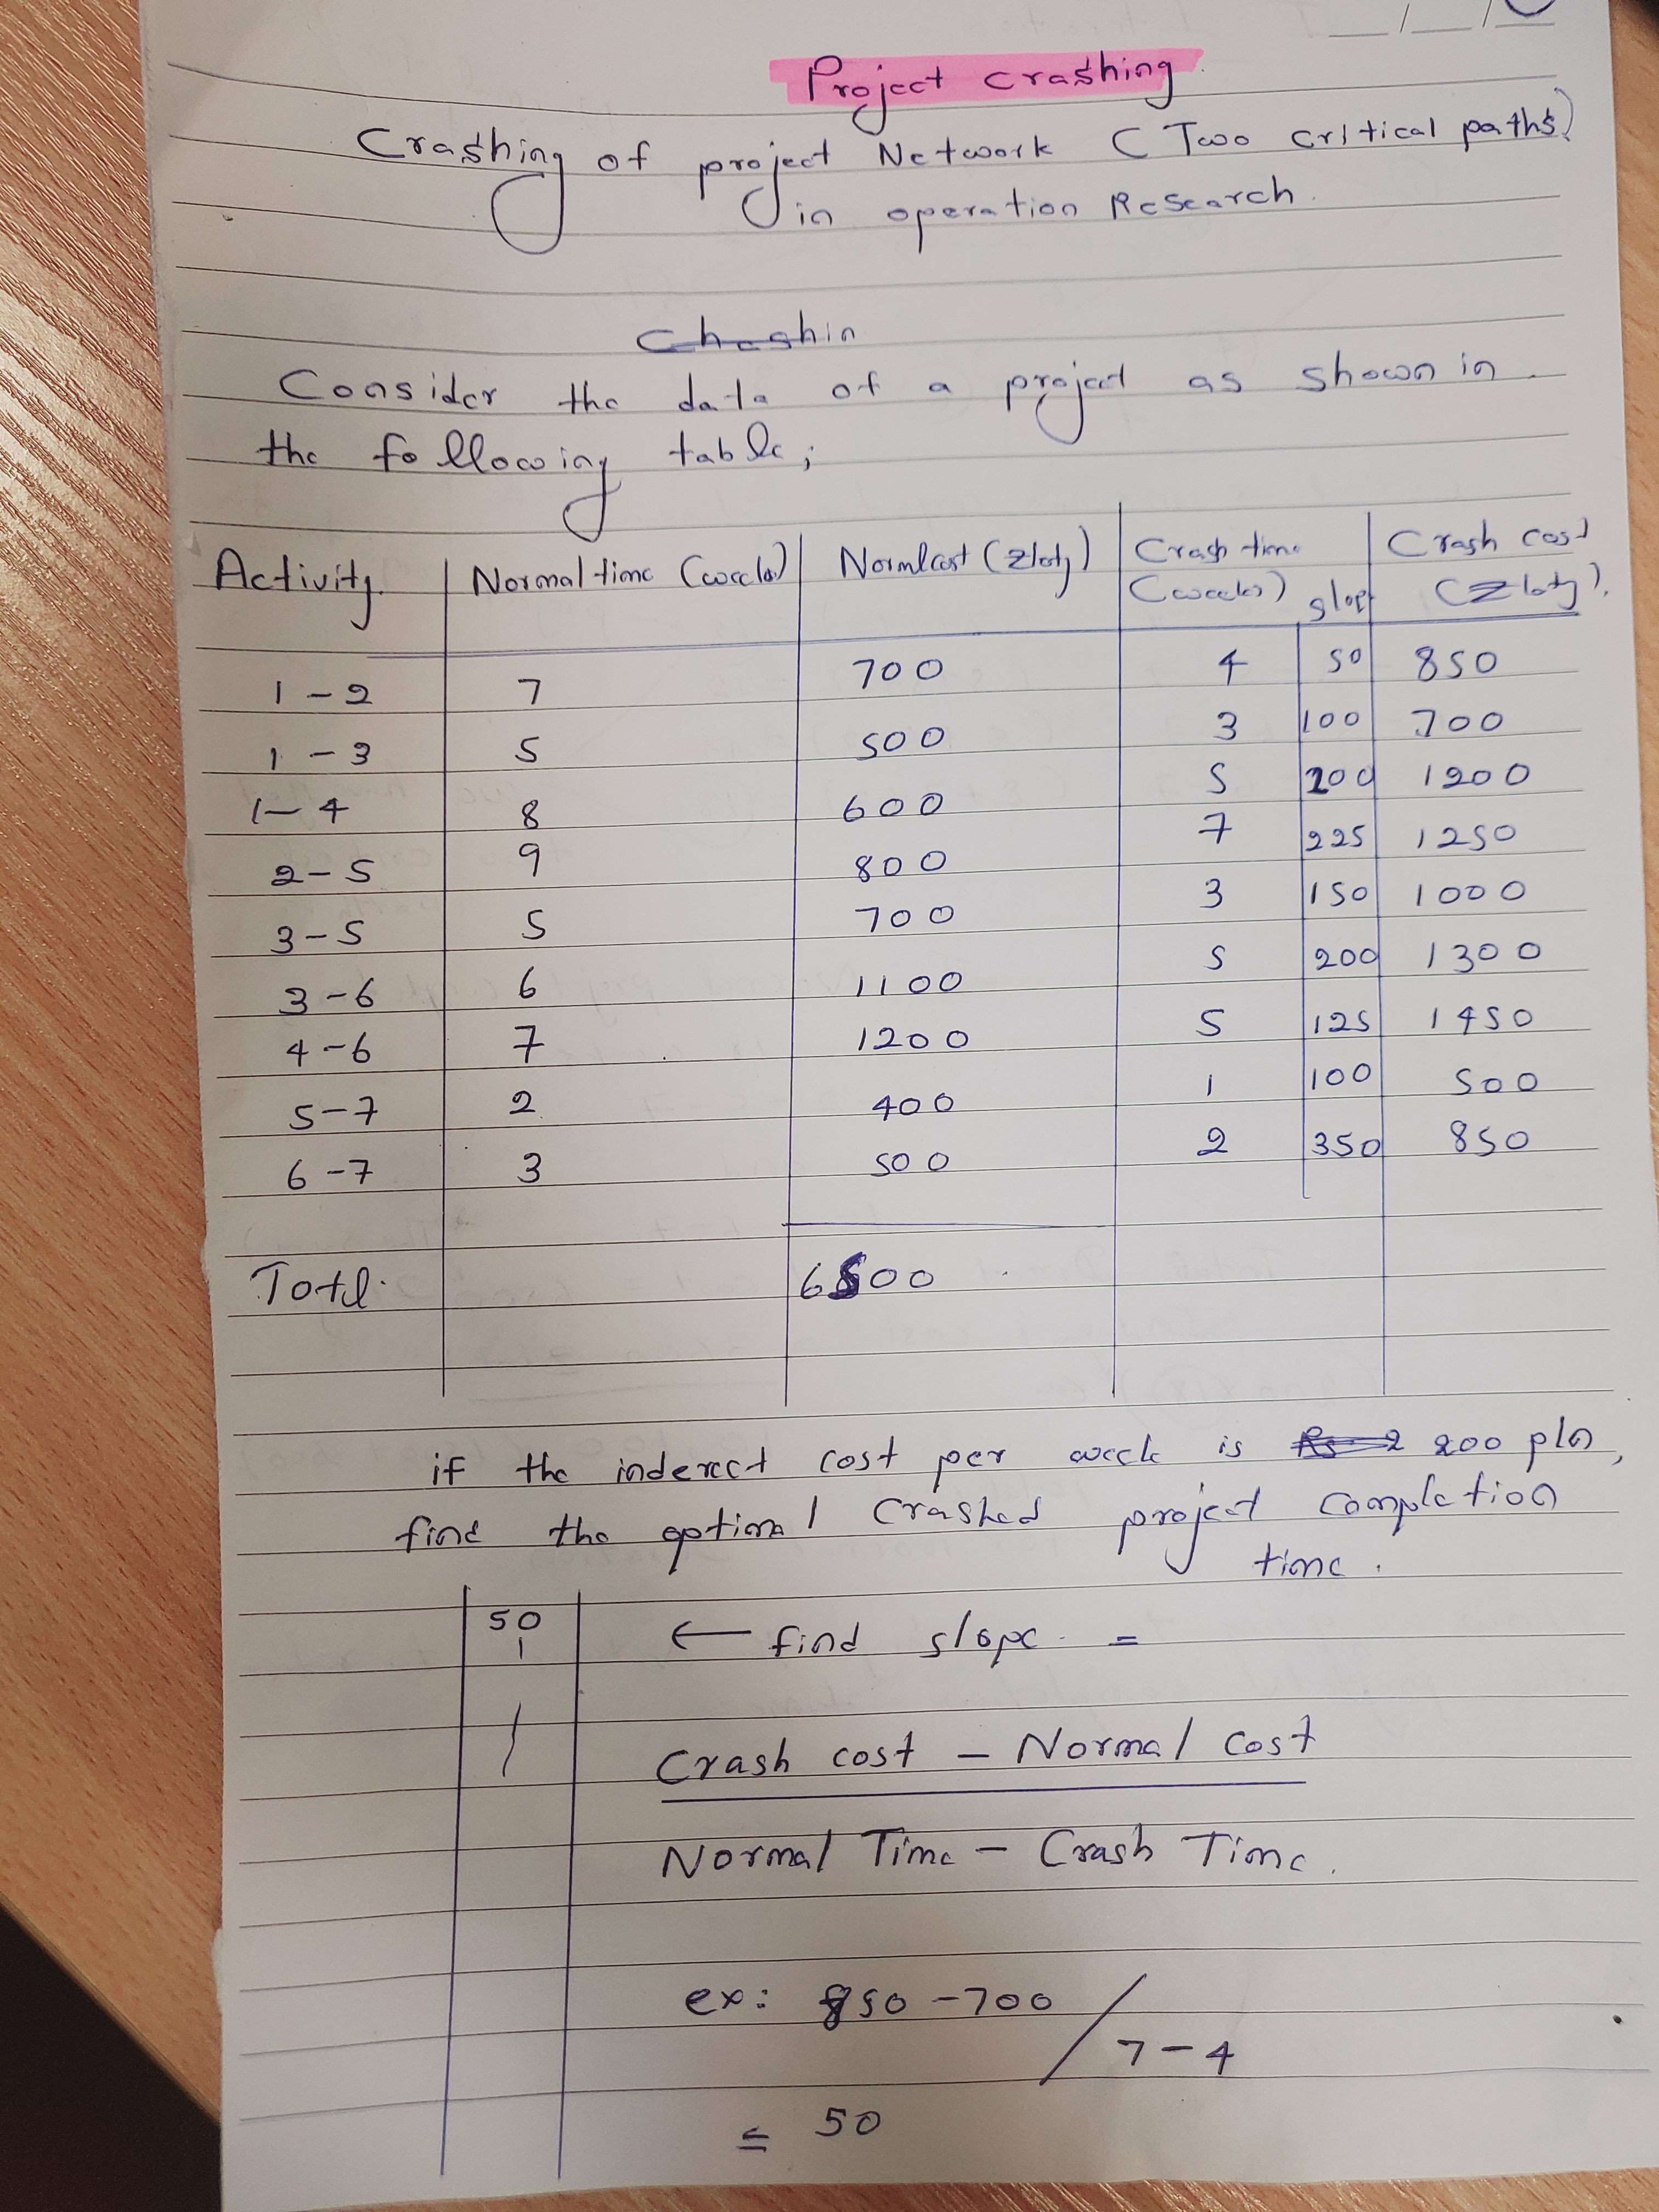 __/__/__
Project crashing
Crashing of project Network (Two critical paths)
in operation Research.
Chashin
Consider the data of a project as shown in
the following table;
Activity. Normal time (weeks) Norml cost (Zloty) Crash time (weeks) slop Crash cost (Zloty).
1-2 7 700 4 50 850
1-3 5 500 3 100 700
1-4 8 600 5 200 1200
2-5 9 800 7 225 1250
3-5 5 700 3 150 1000
3-6 6 1100 5 200 1300
4-6 7 1200 5 125 1450
5-7 2 400 1 100 500
6-7 3 500 2 350 850
Totl. 6500
if the inderect cost per week is 200 pln,
find the optimal crashed project completion
time.
50 ← find slope =
Crash cost - Normal cost
Normal Time - Crash Time.
ex: 850-700 / 7-4
= 50